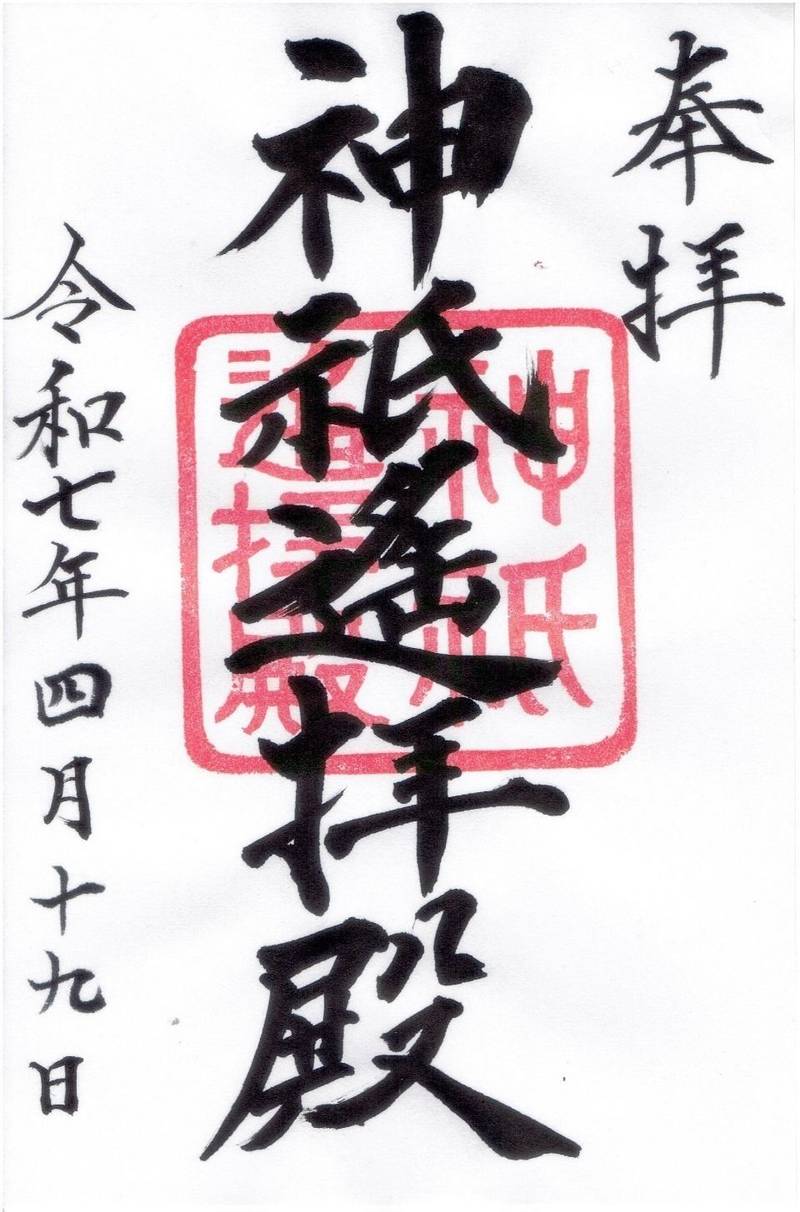 奉拝
神祇遙拝殿
神祇
遙拝殿
令和七年四月十九日